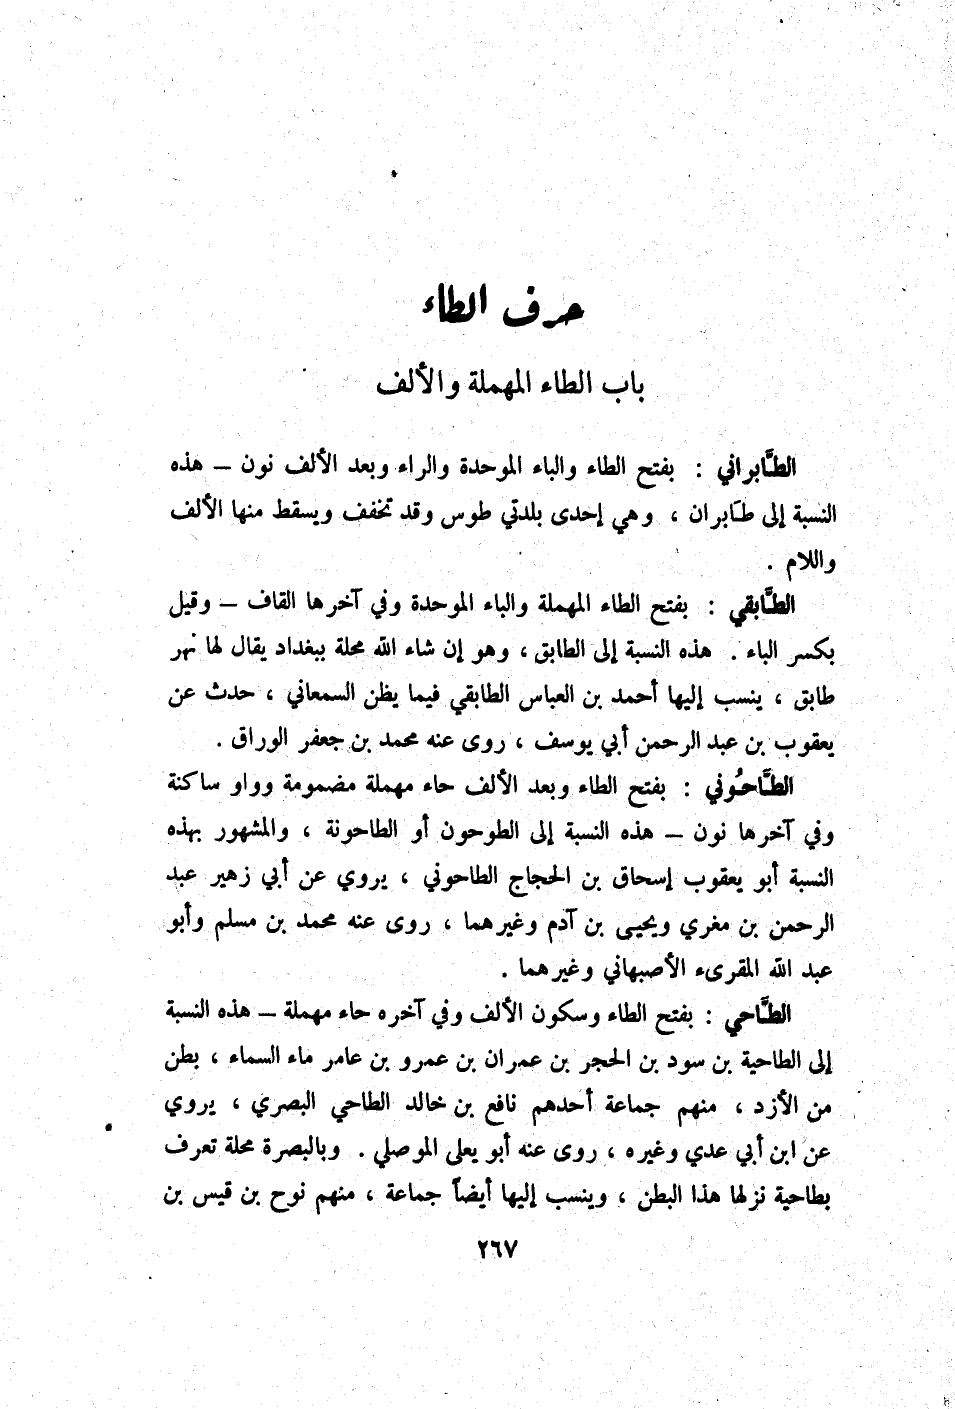 حرف الطاء
باب الطاء المهملة والألف
الطَّابراني : بفتح الطاء والباء الموحدة والراء وبعد الألف نون — هذه
النسبة إلى طَابران ، وهي إحدى بلدتي طوس وقد تخفف ويسقط منها الألف
واللام .
الطَّابقي : بفتح الطاء المهملة والباء الموحدة وفي آخرها القاف — وقيل
بكسر الباء . هذه النسبة إلى الطابق ، وهو إن شاء الله محلة ببغداد يقال لها نهر
طابق ، ينسب إليها أحمد بن العباس الطابقي فيما يظن السمعاني ، حدث عن
يعقوب بن عبد الرحمن أبي يوسف ، روى عنه محمد بن جعفر الوراق .
الطَّاحُوني : بفتح الطاء وبعد الألف حاء مهملة مضمومة وواو ساكنة
وفي آخرها نون — هذه النسبة إلى الطوحون أو الطاحونة ، والمشهور بهذه
النسبة أبو يعقوب إسحاق بن الحجاج الطاحوني ، يروي عن أبي زهير عبد
الرحمن بن مغري ويحيى بن آدم وغيرهما ، روى عنه محمد بن مسلم وأبو
عبد الله المقرىء الأصبهاني وغيرهما .
الطَّاحي : بفتح الطاء وسكون الألف وفي آخره حاء مهملة — هذه النسبة
إلى الطاحية بن سود بن الحجر بن عمران بن عمرو بن عامر ماء السماء ، بطن
من الأزد ، منهم جماعة أحدهم نافع بن خالد الطاحي البصري ، يروي
عن ابن أبي عدي وغيره ، روى عنه أبو يعلى الموصلي . وبالبصرة محلة تعرف
بطاحية نزلها هذا البطن ، وينسب إليها أيضاً جماعة ، منهم نوح بن قيس بن
٢٦٧